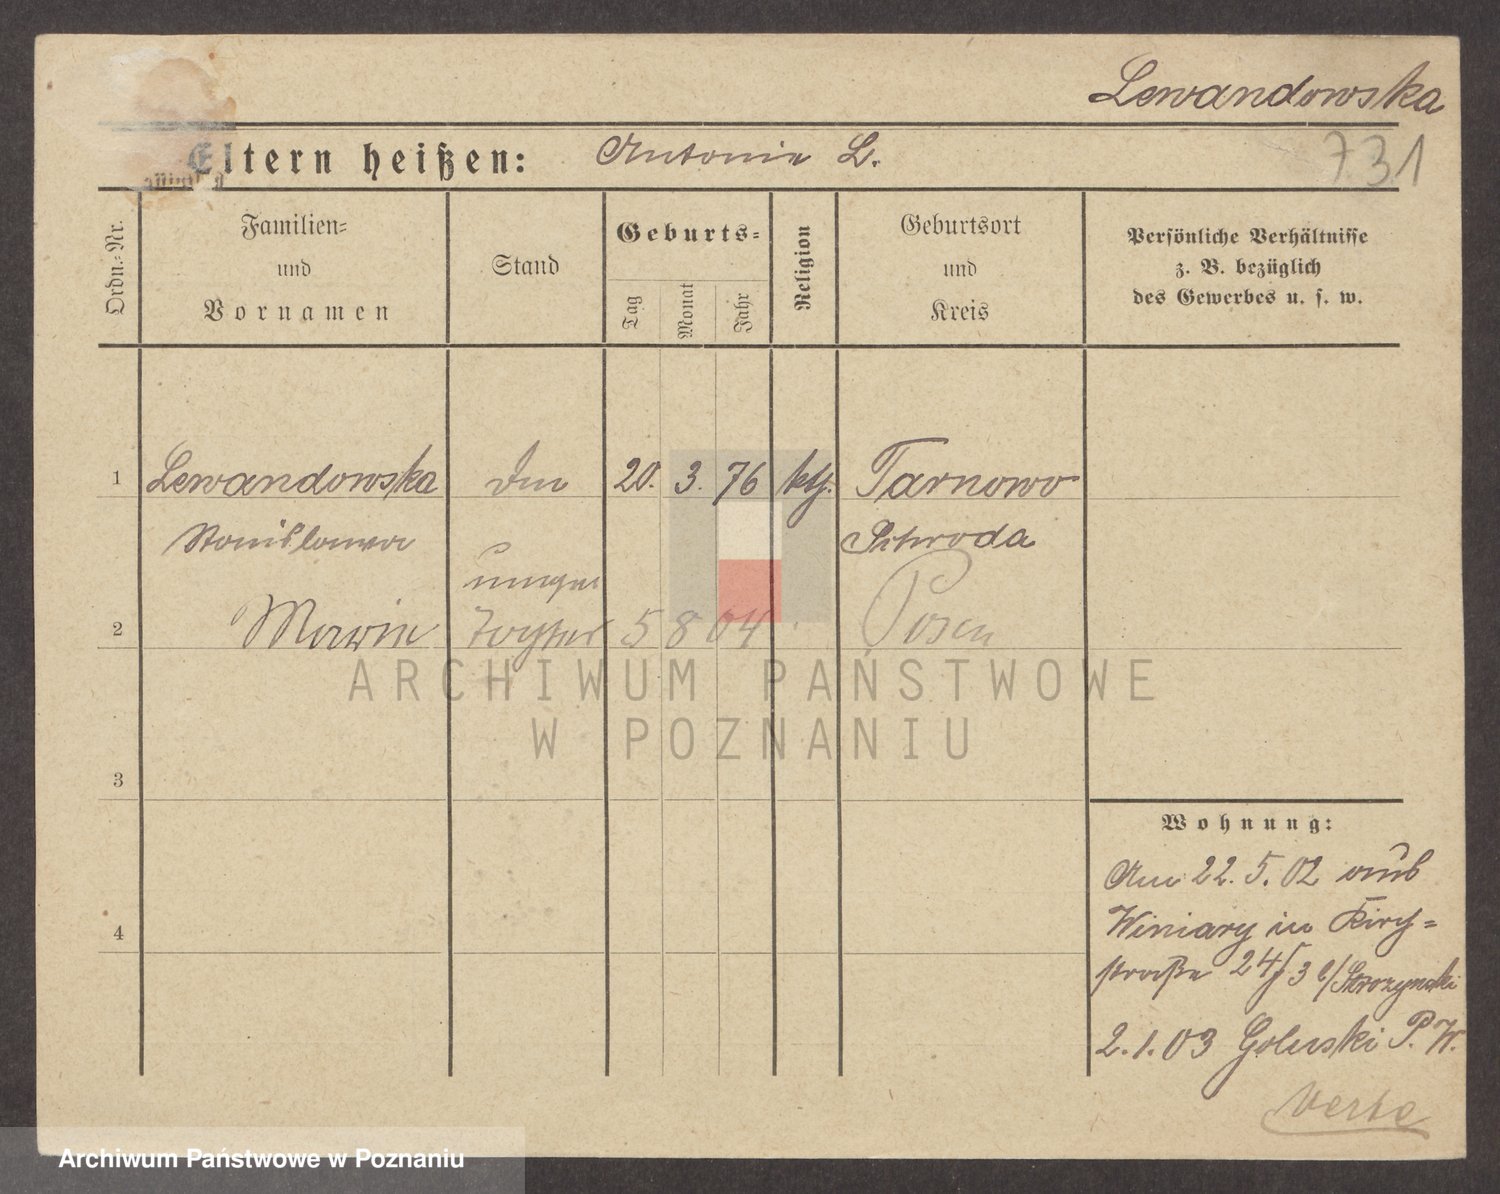 Lewandowska
Eltern heißen: Antonie L.
731
Ordn.-Nr.
Familien-
und
Vornamen
Stand
Geburts-
Tag
Monat
Jahr
Religion
Geburtsort
und
Kreis
Persönliche Verhältnisse
z. B. bezüglich
des Gewerbes u. s. w.
1 Lewandowska 20. 3. 76 kth. Tarnowo
Stanislawa Schroda
unehel
2 Marie Tochter 5 8 04 Posen
ARCHIWUM PAŃSTWOWE
W POZNANIU
3
4
Wohnung:
Am 22. 5. 02 aus
Winiary in Kirch-
straße 24/3 b/Skrozynski
2.1.03 Goluski P. W.
Archiwum Państwowe w Poznaniu